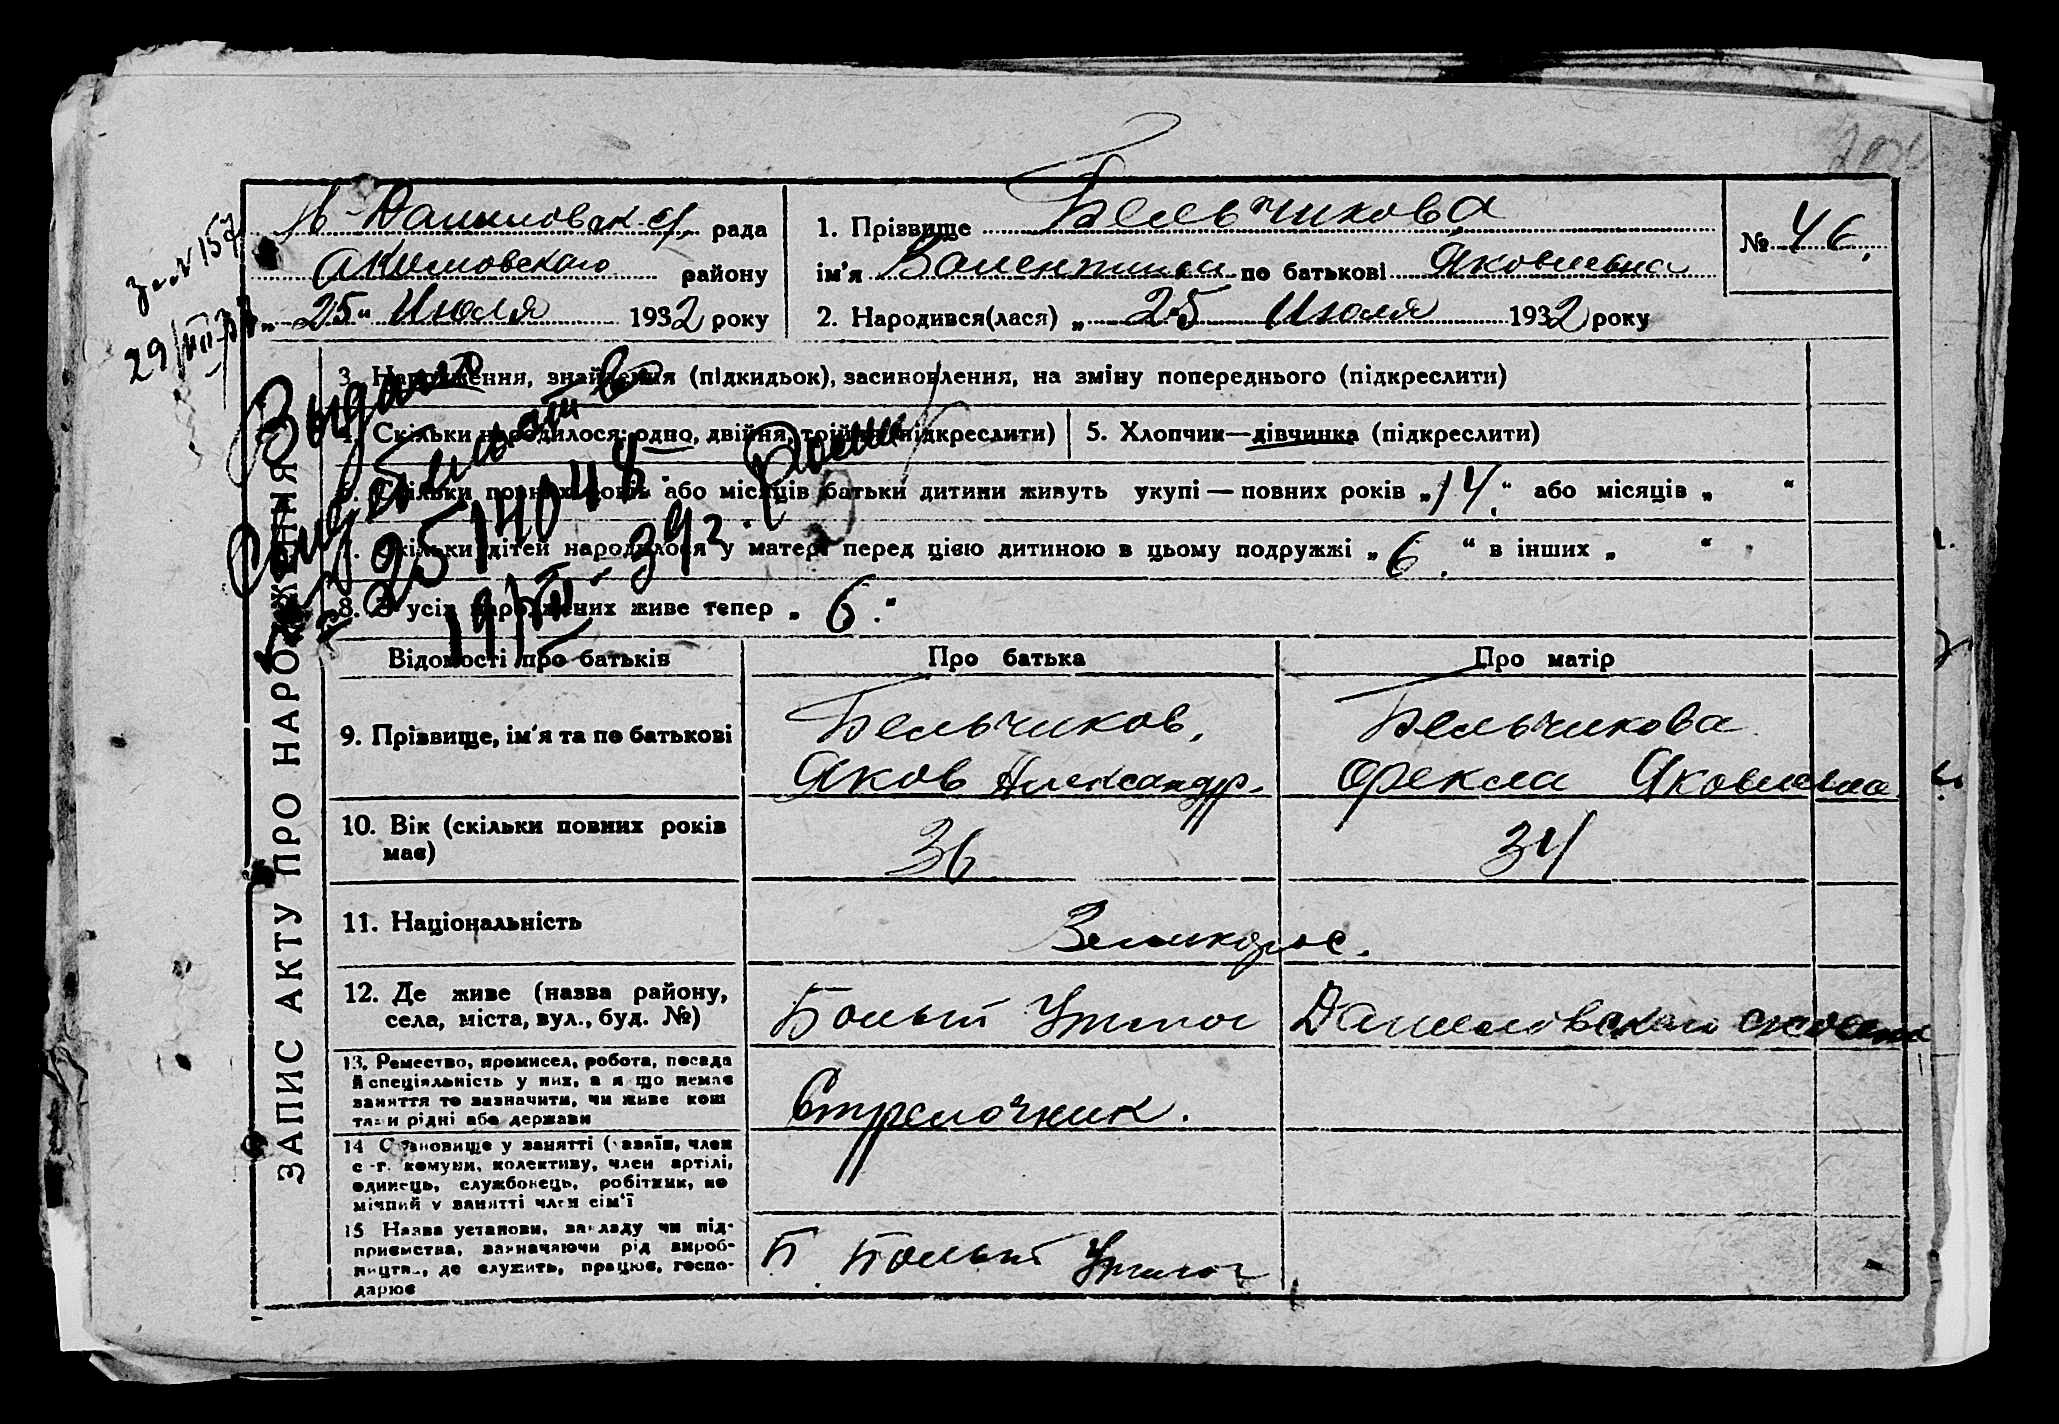 ЗАПИС АКТУ ПРО НАРОДЖЕННЯ
Н-Даниловск. с/. рада
Акимовскаго району
„25" Июля 1932 року
1. Прізвище Бельчикова
ім'я Валентина по батькові Яковлевна
№ 46.
2. Народився(лася) „25 Июля 1932 року
29/VII-39
Выдано
свидетельство
№ 251404
19/VII-39 г.
3. Народження, знайдення (підкидьок), засиновлення, на зміну попереднього (підкреслити)
4. Скільки народилося: одно, двійня, трійня (підкреслити)
5. Хлопчик—дівчинка (підкреслити)
6. Скільки повних років або місяців батьки дитини живуть укупі — повних років „14." або місяців „ "
7. Скільки дітей народилося у матері перед цією дитиною в цьому подружжі „6." в інших „ "
8. З усіх народжених живе тепер „6."
Відомості про батьків
Про батька
Про матір
9. Прізвище, ім'я та по батькові
Бельчиков,
Яков Александр.
Бельчикова
Фекла Яковлевна
10. Вік (скільки повних років має)
36
34
11. Національність
Великорос.
12. Де живе (назва району,
села, міста, вул., буд. №)
Больш Утлюг Даниловской
13. Ремество, промисел, робота, посада
й спеціяльність у них, а я що немає
заняття то зазначити, чи живе кош
тами рідні або держави
Стрелочник.
14 Становище у занятті (хазяїн, член
с.-г. комуни, колективу, член артілі,
одинець, службовець, робітник, по
мічний у занятті член сім'ї
15 Назва установи, закладу чи під-
приємства, зазначаючи рід вироб-
ництва, де служить, працює, госпо-
дарює
П. Больш Утлюг